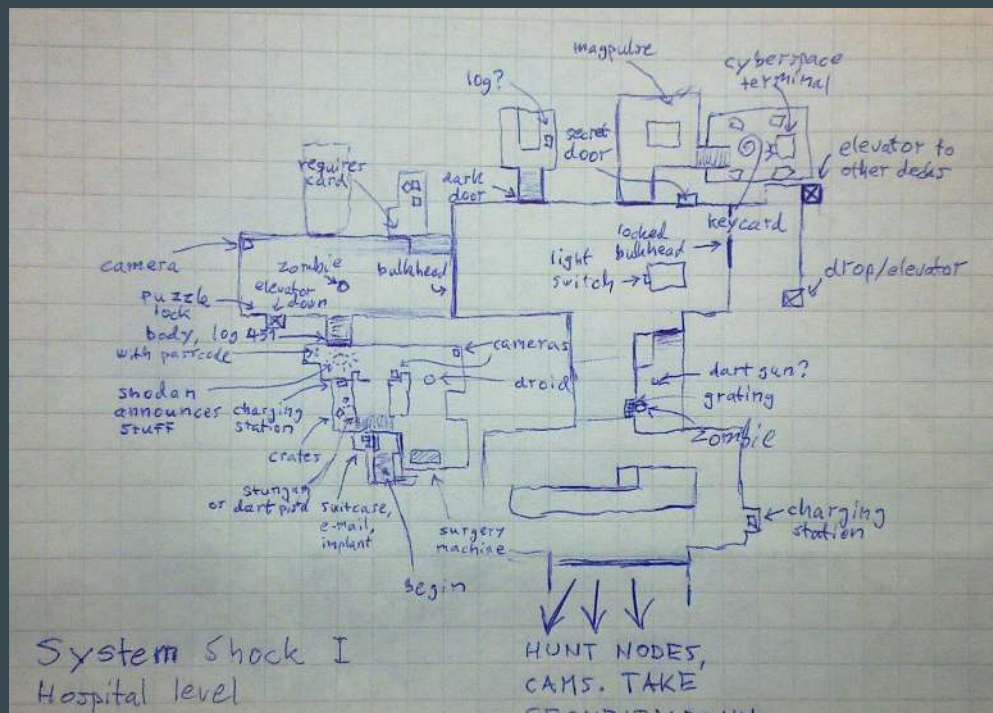 magpulse
cyberspace
terminal
log?
secret
door
elevator to
other decks
requires
card
dark
door
keycard
locked
bulkhead
light
switch
drop/elevator
camera
zombie
bulkhead
elevator
down
puzzle
lock
body, log 451
with passcode
cameras
droid
dart gun?
grating
zombie
shodan
announces
stuff
charging
station
crates
stungun
or dart pistol
suitcase,
e-mail,
implant
surgery
machine
charging
station
begin
System Shock I
Hospital level
HUNT NODES,
CAMS. TAKE